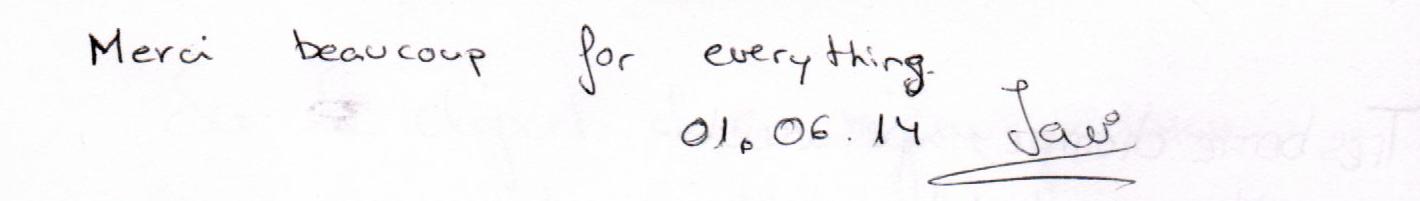 Merci beaucoup for everything.
01.06.14 Javi